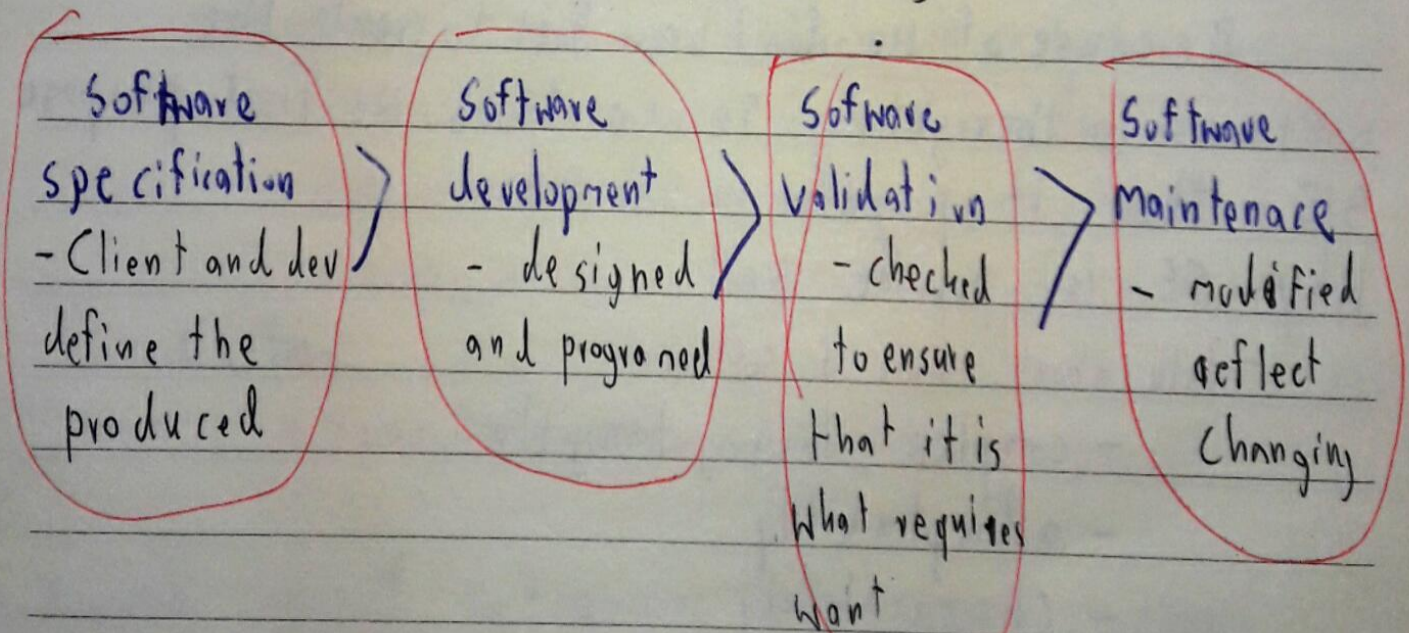 Software
specification
- Client and dev
define the
produced
>
Software
development
- designed
and programed
>
Sofware
validation
- checked
to ensure
that it is
what requires
want
>
Software
maintenace
- modified
reflect
changing